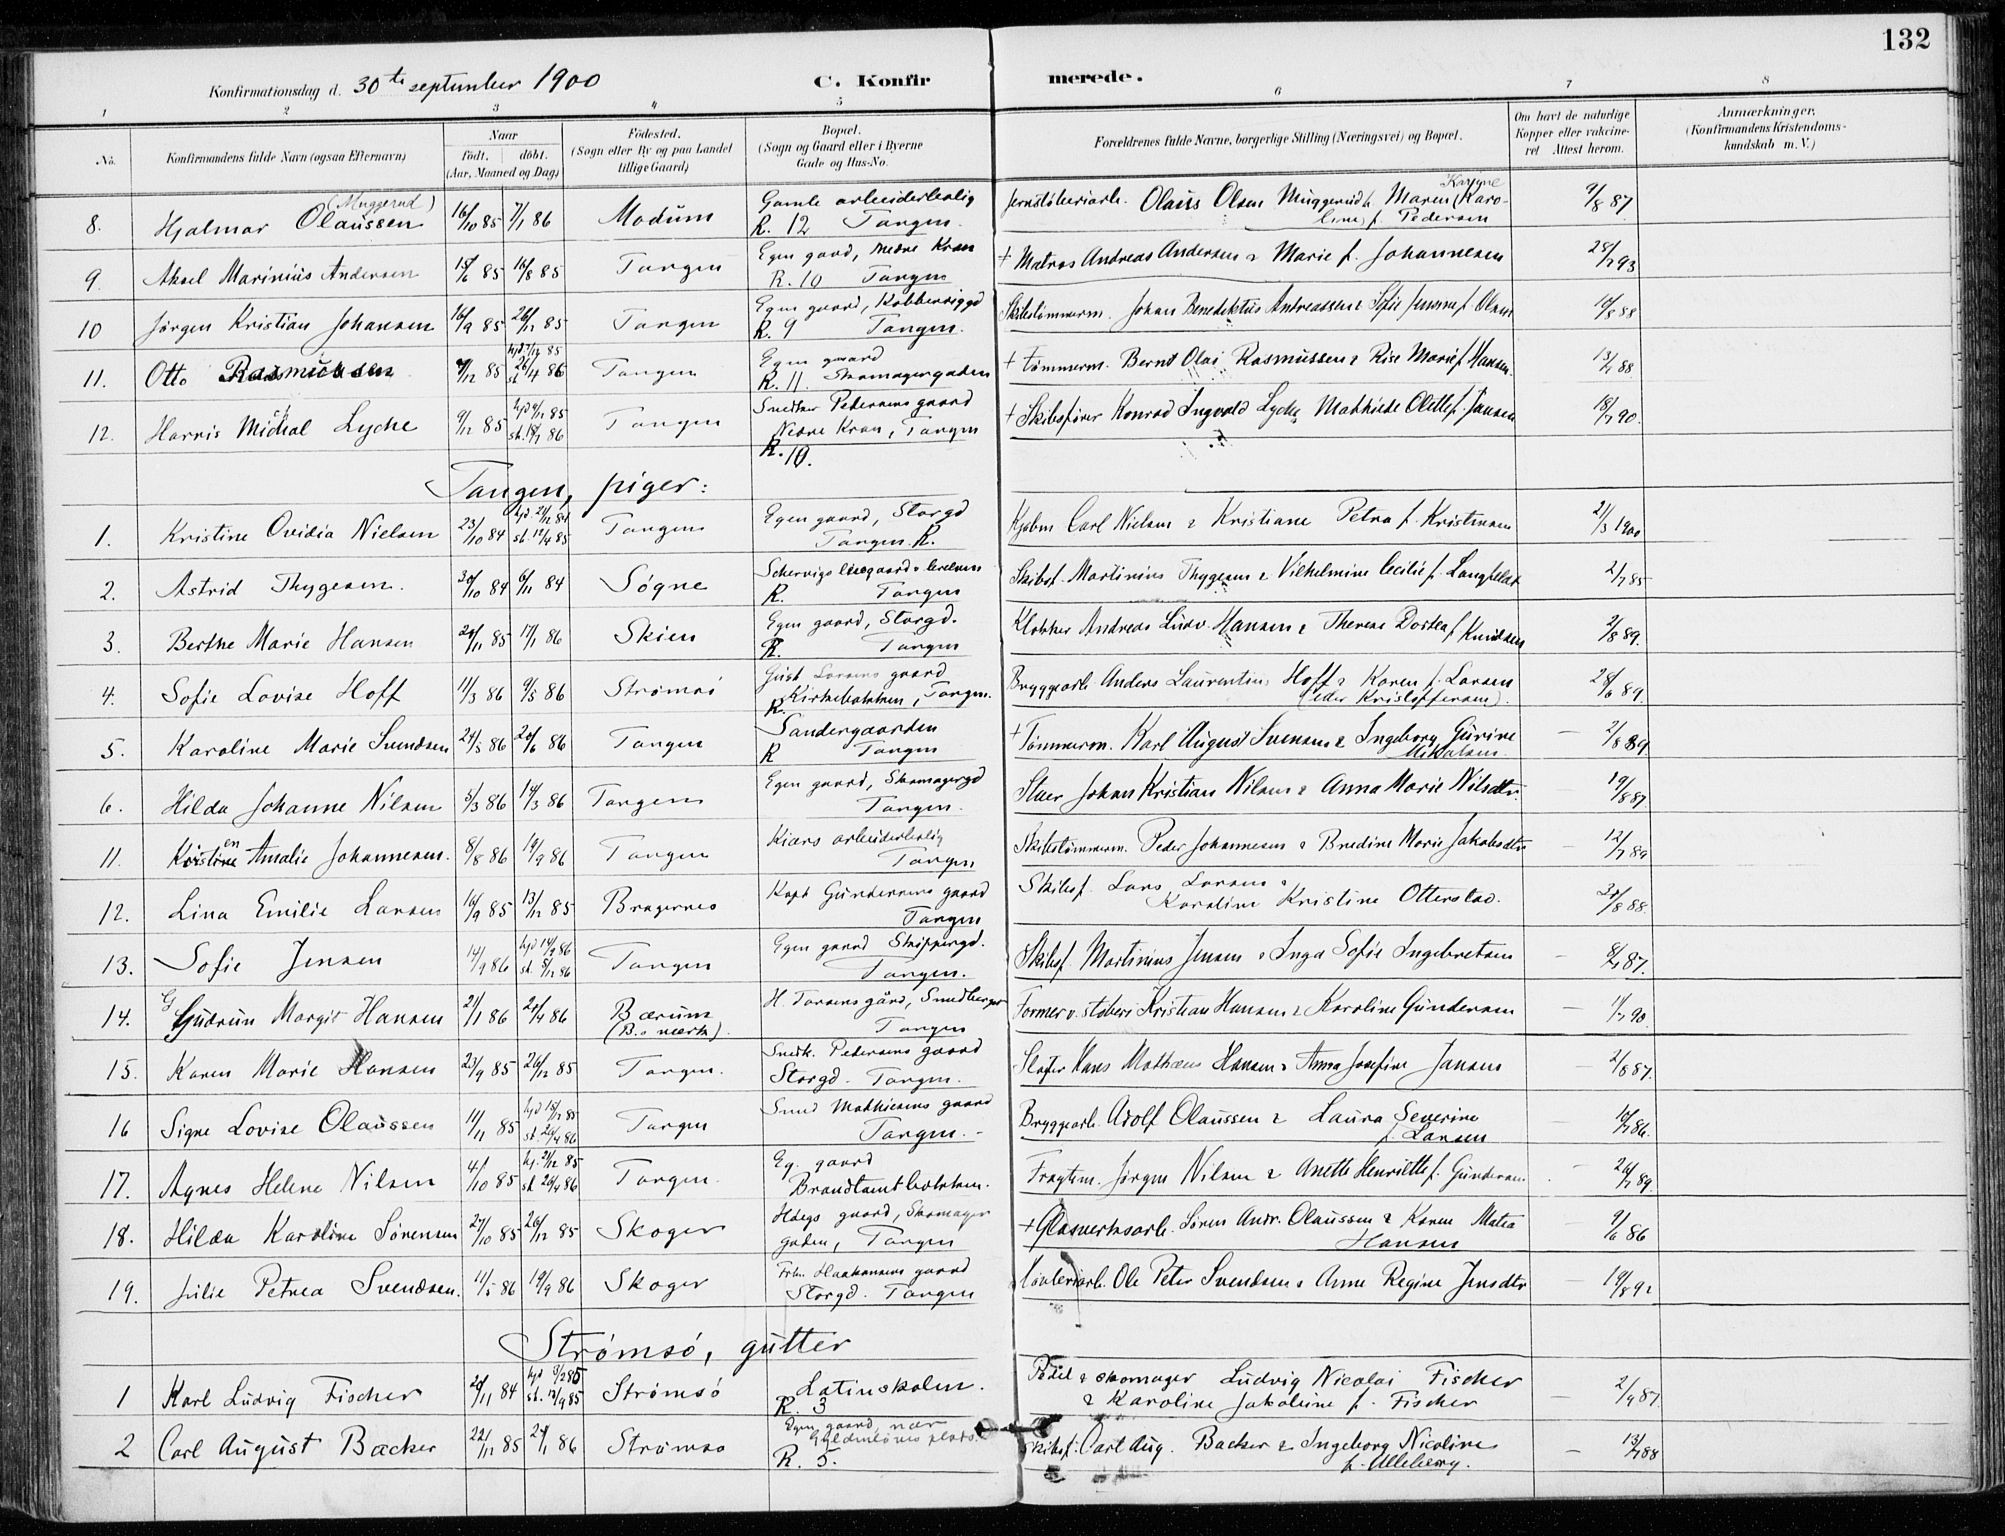 132
Konfirmationsdag d. 30te september 1900 C. Konfirmerede.
1 2 3 4 5 6 7 8
No. Konfirmandens fulde Navn (ogsaa Efternavn) Naar født. døbt. (Aar, Maaned og Dag) Fødested. (Sogn eller By og paa Landet tillige Gaard) Bopæl. (Sogn og Gaard eller i Byerne Gade og Hus-No. Forældrenes fulde Navne, borgerlige Stilling (Næringsvei) og Bopæl. Om havt de naturlige Kopper eller vaccineret Attest herom. Anmærkninger. (Konfirmandens Kristendomskundskab m. V.)
8. Hjalmar Olaussen (Muggerud) 16/10 85 7/1 86 Modum Gamle arbeiderbolig R. 12 Tangen Jernstøberiarb. Olaus Olsen Muggerud & Maren Karoline f. Pedersen 9/8 87
9. Aksel Marinius Andersen 15/6 85 16/8 85 Tangen Egen gaard, Nedre Kran R. 10 Tangen + Matros Andreas Andersen & Marie f. Johannesen 28/7 93
10 Jørgen Kristian Johansen 16/9 85 26/12 85 Tangen Egen gaard, R. 9 Tangen. Skibstømmerm. Johan Benediktus Andreassen & Sofie f. Olsen 10/8 88
11. Otto Rasmussen 7/12 85 hjd 7/12 85 st. 26/4 86 Tangen Egen gaard R. 11. Skomagergaden + Tømmerm. Bernt Olai Rasmussen & Rise Marie f. Hansen 13/7 88
12. Harris Michal Lyche 9/12 85 hjd 9/12 85 st. 18/7 86 Tangen Snedker Pedersens gaard Nedre Kran, Tangen R. 10. + Skibsfører Konrad Ingvald Lyche Mathilde Olette f. Jansen 18/7 90.
Tangen, piger:
1. Kristine Ovidia Nielsen 23/10 84 hjd 21/12 84 st. 12/4 85 Tangen Egen gaard, Storgd Tangen R. Kjøbm Carl Nielsen & Kristiane Petra f. Kristensen 21/3 1900
2. Astrid Thygesen. 30/10 84 6/11 84 Søgne R. Tangen Skibsf. Martinius Thygesen & Vilhelmine Cecilie f. Langfeldt 2/7 85
3. Berthe Marie Hansen 24/11 85 17/1 86 Skien Egen gaard, Storgd. R. Tangen Klokker Andreas Ludv. Hansen & Therese Dortea f Knudsen 2/8 89.
4. Sofie Lovise Hoff 11/3 86 9/5 86 Strømsø Gust Larsens gaard R. Kirkebakken, Tangen. Bryggearb. Anders Laurentius Hoff & Karen f. Larsen (eder Kristoffersen). 28/6 89.
5. Karoline Marie Svendsen 24/5 86 20/6 86 Tangen Sandergaarden R Tangen + Tømmerm. Karl August Svensen & Ingeborg Gurine Mikalsen — 2/8 89
6. Hilda Johanne Nilsen 5/3 86 14/3 86 Tangen Egen gaard, Skomagergd Tangen. Stuer Johan Kristian Nilsen & Anna Marie Nilsdtr. 19/8 87
11. Kristine en Amalie Johannesen. 8/8 86 19/9 86 Tangen Kiærs arbeiderbolig Tangen Skibstømmerm. Peder Johannesen & Bredine Marie Jakobsdtr — 12/7 89
12. Lina Emilie Larsen 16/9 85 13/12 85 Bragernes Kapt Gundersens gaard Tangen Skibsf. Lars Larsen & Karoline Kristine Otterstad. 31/8 88.
13. Sofie Jensen 14/9 86 hjd 14/9 86 st. 5/12 86 Tangen Egen gaard Skippergd. Tangen. Skibsf. Martinius Jensen & Inga Sofie Ingebretsen — 8/7 87.
14. Gudrun Margit Hansen 21/1 86 20/4 86 Bærum (B.s værk). H. Tarsens gård, Smedberget Tangen Former v. støberi Kristian Hansen & Karoline Gundersen — 11/7 90.
15. Karen Marie Hansen 23/9 85 26/12 85 Tangen. Snedk. Pedersens gaard Storgd. Tangen. Hans Mathæus Hansen & Anna Josefine Jansen — 2/8 87.
16 Signe Lovise Olaussen 11/11 85 hjd 15/12 85 st. 26/4 86 Tangen Smed Mathiesens gaard Tangen. Bryggearb. Adolf Olaussen & Laura Severine f. Larsen 10/7 86.
17. Agnes Helene Nilsen 4/10 85 hj. 21/12 85 st 26/4 86 Tangen. Eg. gaard Brandtambakken. Fragtem. Jørgen Nilsen & Anette Henriette f. Gundersen — 20/7 89.
18. Hilda Karoline Sørensen 27/10 85 26/12 85 Skoger Høegs gaard, Skomagergaden, Tangen + Glasverksarb. Søren Andr. Olaussen & Karen Matea Hansen — 9/6 86
19. Julie Petrea Svendsen. 11/5 86 19/9 86 Skoger Haakonsens gaard Storgd. Tangen Støberiarb. Ole Peter Svendsen & Anne Regine Jensdtr — 19/8 92
Strømsø, gutter
1 Karl Ludvig Fischer 20/11 84 hjd 3/2 85 st. 13/9 85 Strømsø Latinskolen. R. 3 Pedel & skomager Ludvig Nicolai Fischer & Karoline Jakobine f. Fischer — 2/9 87
2 Carl August Backer 22/12 85 24/1 86 Strømsø Egen gaard, nær Gyldenløves plads. R. 5. Skibsf. Carl Aug. Backer & Ingeborg Nicoline f. Ulleberg. — 13/7 88